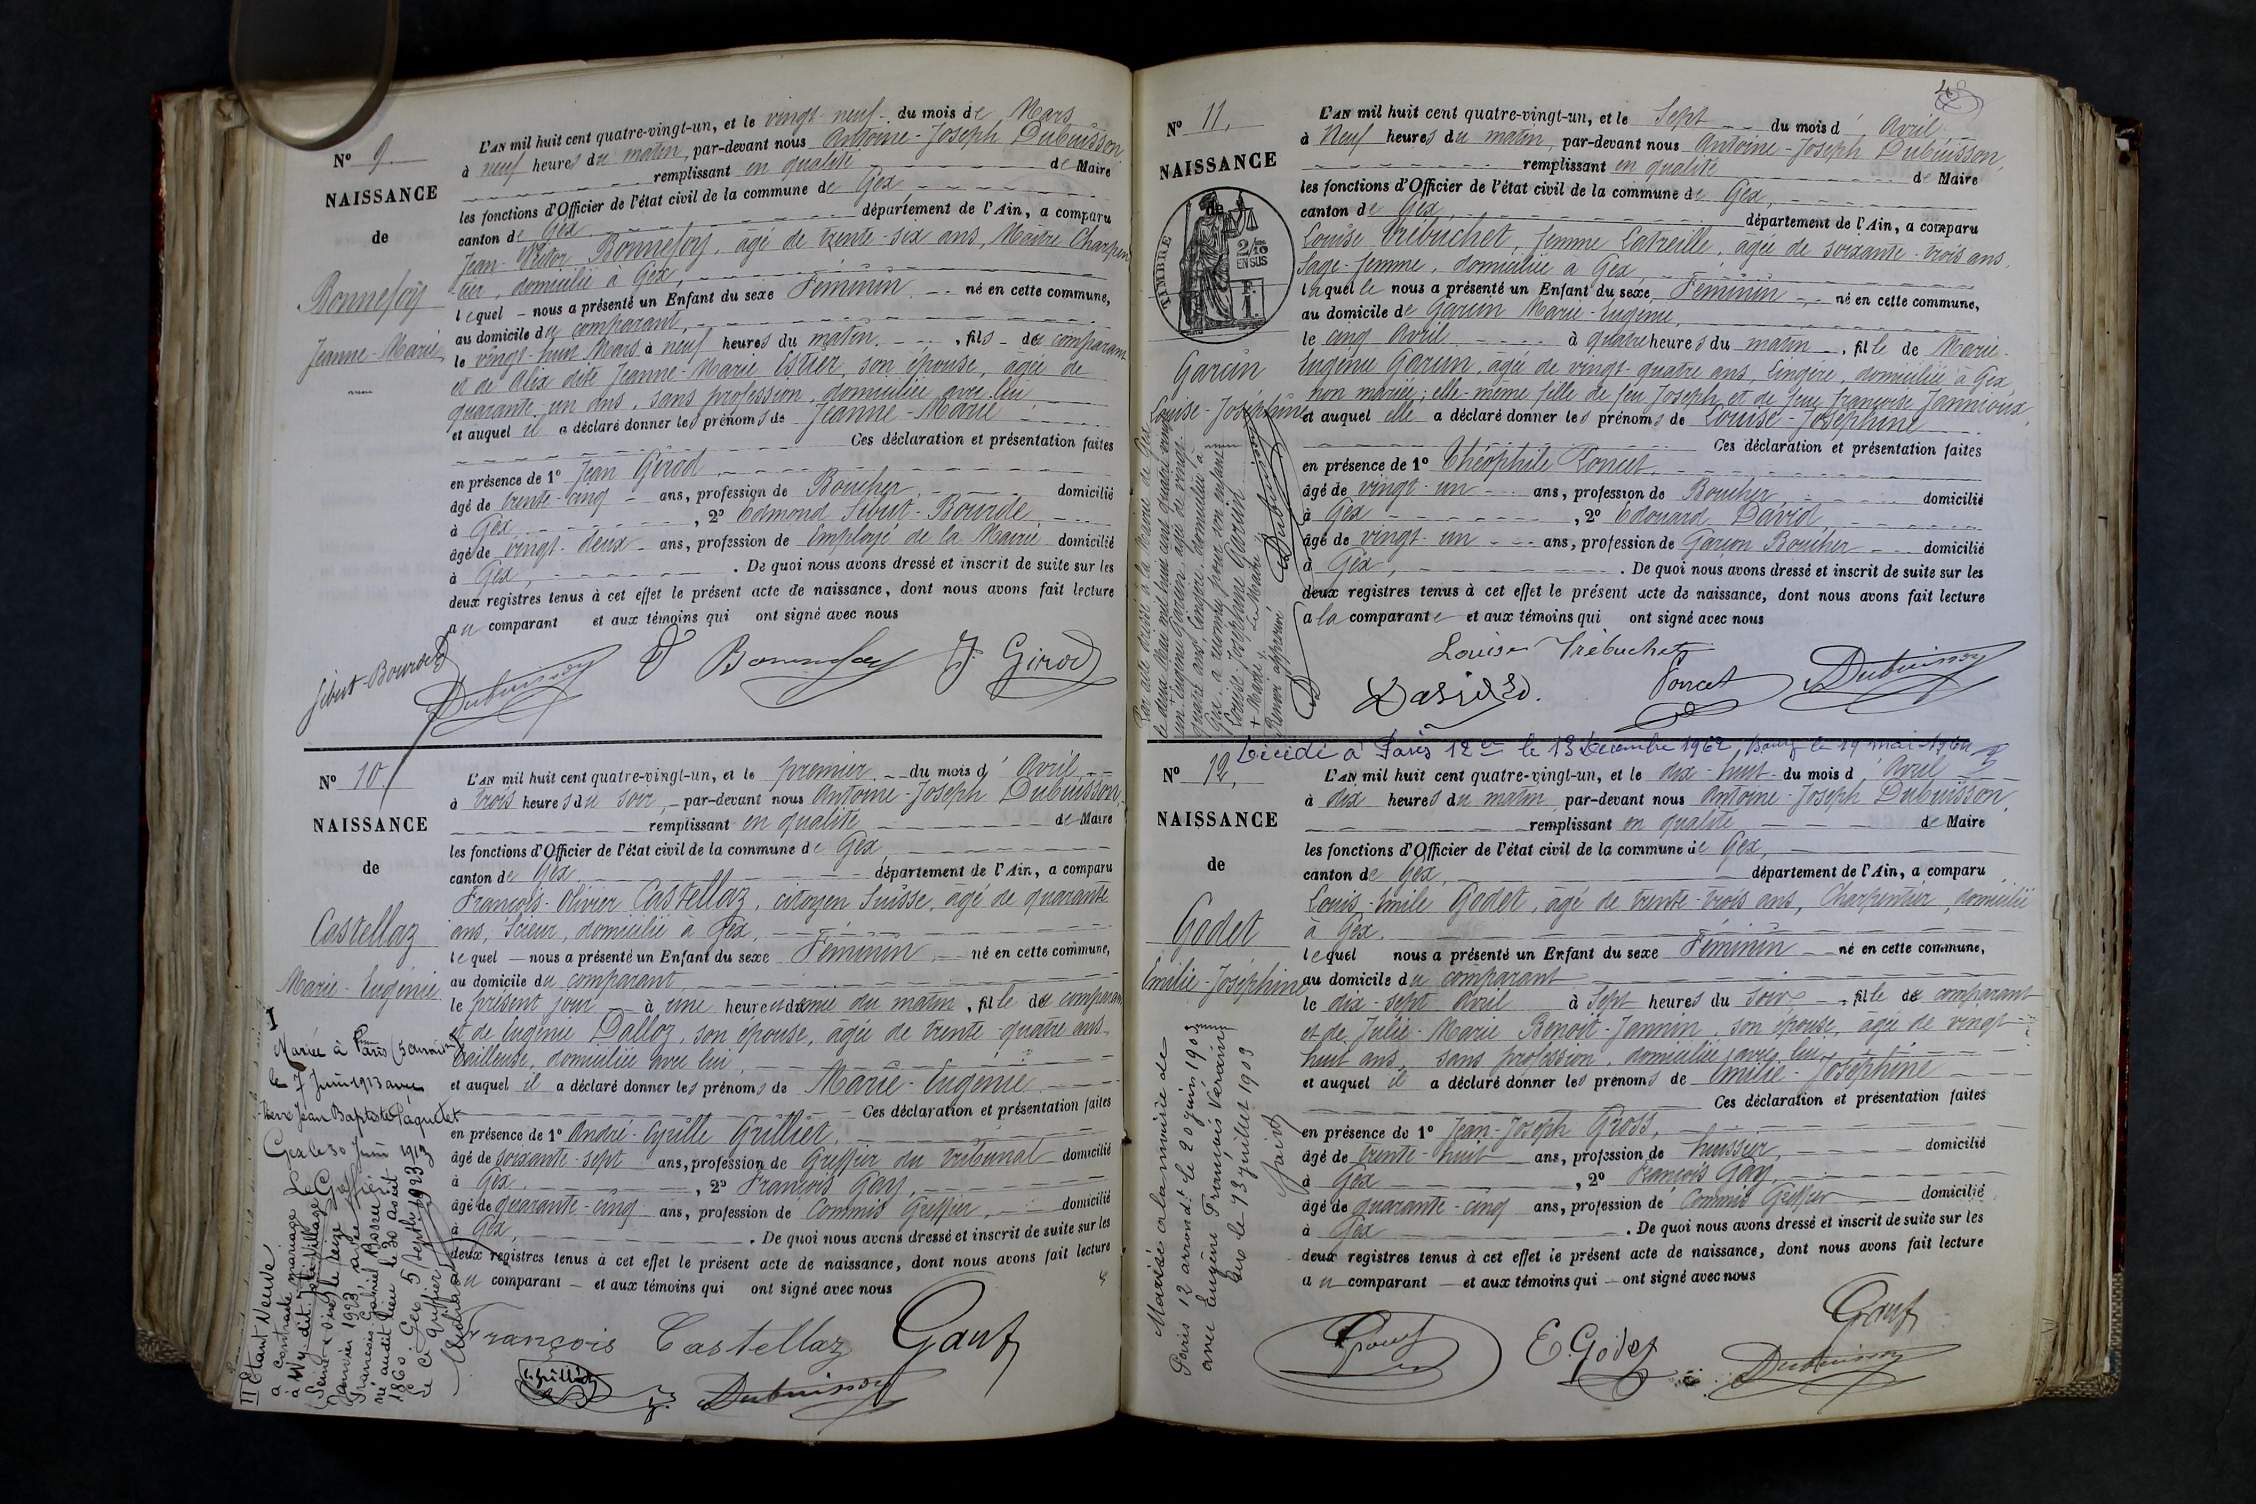 N° 9
NAISSANCE
de
Bonnefoy
Jeanne-Marie
L'AN mil huit cent quatre-vingt-un, et le vingt-neuf du mois de Mars
à neuf heures du matin, par-devant nous Antoine-Joseph Dubuisson
remplissant en qualité de Maire
les fonctions d'Officier de l'état civil de la commune de Gex
canton de Gex département de l'Ain, a comparu
Jean-Victor Bonnefoy, âgé de trente-six ans, Maître Charpen
tier, domicilié à Gex,
lequel nous a présenté un Enfant du sexe Féminin né en cette commune,
au domicile du comparant,
le vingt-huit Mars à neuf heures du matin, fils du comparant
et de Alix dite Jeanne-Marie Estier, son épouse, âgée de
quarante-un ans, sans profession, domiciliée avec lui
et auquel il a déclaré donner les prénoms de Jeanne-Marie
Ces déclaration et présentation faites
en présence de 1° Jean Girod
âgé de trente-cinq ans, profession de Boucher, domicilié
à Gex, 2° Edmond Sibut-Bourde,
âgé de vingt-deux ans, profession de Employé de la Mairie domicilié
à Gex, . De quoi nous avons dressé et inscrit de suite sur les
deux registres tenus à cet effet le présent acte de naissance, dont nous avons fait lecture
au comparant et aux témoins qui ont signé avec nous
Sibut-Bourde Dubuisson Bonnefoy J. Girod
N° 10
NAISSANCE
de
Castellaz
Marie-Eugénie
I
Mariée à Paris (5e arrond)
le 7 Juin 1913 avec
Pierre Jean Baptiste Paquetet
Gex le 30 Juin 1913
Le Greffier
II Etant Veuve
a contracté mariage
à Wy-dit-Joli-Village
(Seine et Oise) le seize
Janvier 1923, avec
Francois Gabriel Rosree
né audit lieu le 30 août
1860. Gex 5 septbre 1923
Le C. Greffier
L'AN mil huit cent quatre-vingt-un, et le premier du mois d'Avril,
à trois heures du soir, par-devant nous Antoine-Joseph Dubuisson,
remplissant en qualité de Maire
les fonctions d'Officier de l'état civil de la commune de Gex,
canton de Gex, département de l'Ain, a comparu
François-Olivier Castellaz, citoyen Suisse, âgé de quarante
ans, Scieur, domicilié à Gex,
lequel nous a présenté un Enfant du sexe Féminin né en cette commune,
au domicile du comparant,
le présent jour à une heure et demie du matin, fille du comparant
et de Eugénie Dalloz, son épouse, âgée de trente-quatre ans
Tailleuse, domiciliée avec lui,
et auquel il a déclaré donner les prénoms de Marie-Eugénie
Ces déclaration et présentation faites
en présence de 1° André-Cyrille Grilliet,
âgé de soixante-sept ans, profession de Greffier du tribunal domicilié
à Gex, 2° François Gay,
âgé de quarante-cinq ans, profession de Commis Greffier, domicilié
à Gex, . De quoi nous avons dressé et inscrit de suite sur les
deux registres tenus à cet effet le présent acte de naissance, dont nous avons fait lecture
au comparant et aux témoins qui ont signé avec nous
François Castellaz Gay
Grilliet Dubuisson
4
N° 11.
NAISSANCE
de
TIMBRE
2/10
EN SUS
1 F.
Garcin
Louise-Joséphine
Par acte dressé à la Mairie de Gex
le deux Mai mil huit cent quatre vingt
un Eugénie Garcin, âgée de vingt-
quatre ans, Lingère, domiciliée à
Gex, a reconnu pour son enfant
Louise-Joséphine Garcin
+ Marie Le Maire
Renvoi approuvé Dubuisson
L'AN mil huit cent quatre-vingt-un, et le Sept du mois d'Avril,
à Neuf heures du matin, par-devant nous Antoine-Joseph Dubuisson,
remplissant en qualité de Maire
les fonctions d'Officier de l'état civil de la commune de Gex,
canton de Gex, département de l'Ain, a comparu
Louise Trébuchet, femme Latreille, âgée de soixante-trois ans,
Sage-femme, domiciliée à Gex,
laquelle nous a présenté un Enfant du sexe Féminin né en cette commune,
au domicile de Garcin Marie-Eugénie,
le cinq Avril à quatre heures du matin, fille de Marie-
Eugénie Garcin, âgée de vingt-quatre ans, Lingère, domiciliée à Gex,
non mariée; elle-même fille de feu Joseph et de feue Françoise Jannioux,
et auquel elle a déclaré donner les prénoms de Louise-Joséphine
Ces déclaration et présentation faites
en présence de 1° Théophile Poncet,
âgé de vingt-un ans, profession de Boucher, domicilié
à Gex, 2° Edouard David,
âgé de vingt-un ans, profession de Garçon Boucher domicilié
à Gex, . De quoi nous avons dressé et inscrit de suite sur les
deux registres tenus à cet effet le présent acte de naissance, dont nous avons fait lecture
a la comparante et aux témoins qui ont signé avec nous
Louise Trébuchet
David. Poncet Dubuisson
Décédé à Paris 12e le 13 Décembre 1962, le 19 mai 1964
N° 12,
NAISSANCE
de
Godet
Emilie-Joséphine
Mariée à la mairie de
Paris 12 arrondt le 20 juin 1903
avec Eugène François Verain
Gex le 13 juillet 1903
L'AN mil huit cent quatre-vingt-un, et le dix-huit du mois d'Avril
à dix heures du matin par-devant nous Antoine-Joseph Dubuisson,
remplissant en qualité de Maire
les fonctions d'Officier de l'état civil de la commune de Gex,
canton de Gex, département de l'Ain, a comparu
Louis-Emile Godet, âgé de trente-trois ans, Charpentier, domicilié
à Gex,
lequel nous a présenté un Enfant du sexe Féminin né en cette commune,
au domicile du comparant
le dix-sept Avril à Sept heures du soir, fille du comparant
et de Julie-Marie Benoit-Jannin, son épouse, âgée de vingt-
huit ans, sans profession, domiciliée avec lui,
et auquel il a déclaré donner les prénoms de Emilie-Joséphine
Ces déclaration et présentation faites
en présence de 1° Jean-Joseph Gross,
âgé de trente-huit ans, profession de huissier, domicilié
à Gex, 2° François Gay,
âgé de quarante-cinq ans, profession de Commis Greffier domicilié
à Gex . De quoi nous avons dressé et inscrit de suite sur les
deux registres tenus à cet effet le présent acte de naissance, dont nous avons fait lecture
au comparant et aux témoins qui ont signé avec nous
E. Godet Gay
Dubuisson